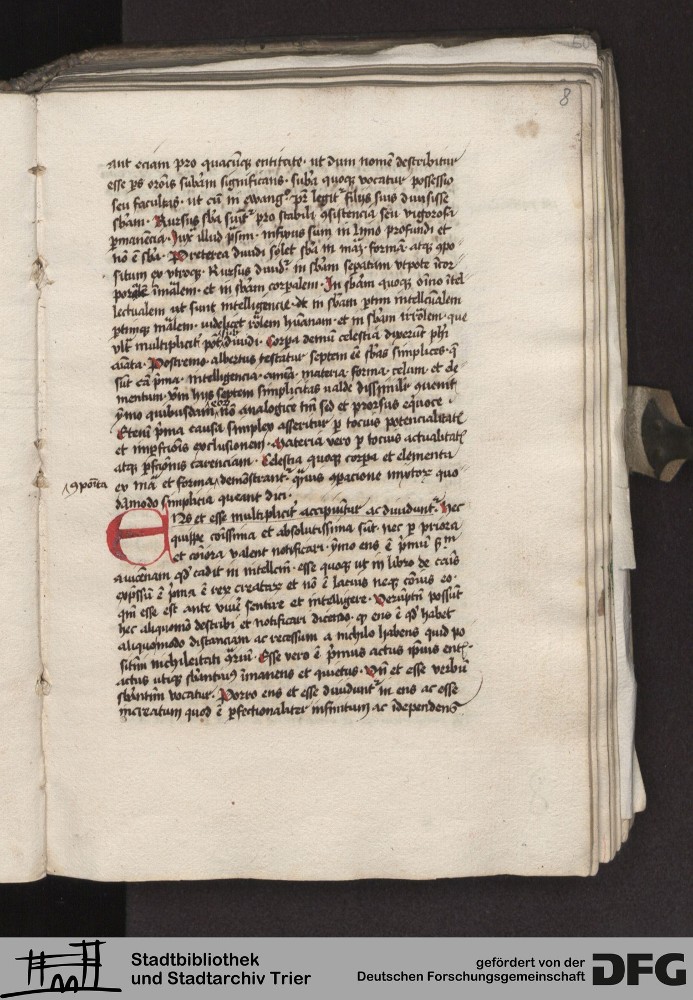 8
aut eciam pro quacūqꝫ entitate · ut dum nomē describitur
esse ps orōis subām significans · suba quoqꝫ vocatur possessio
seu facultas · ut cū in ewangº pr̄ legit᷑ filijs suis diuisisse
sbām · Rursus sba sūt᷑ pro stabili ꝯsistencia seu vigorosa
ꝑmanēcia · Iux illud ps̄m · infixus sum in limo profundi et
nō ē sba · Preterea diuidi solet sba in mām · formā · atqꝫ ꝯpo
situm ex vtroqꝫ · Rursus diuid᷑ in sbam sepatam vtpote īcor
et in sbam corpalem · In sbam quoqꝫ oīno ītel
lectualem ut sunt intelligencie · et in sbam ptim intellc̄ualem
ptimqꝫ · videlicet rōlem hūanam · et in sbam irrōlem · que
multiplicit᷑ pōt diuidi · Corpa demū celestia dixerūt phī
aīata · Postremo · albertus testatur septem eē sbas simplices · q̄
sūt cā prima · intelligencia · anima · materia · forma · celum · et ele
mentum · hijs septem simplicitas valde dissimilit᷑ ꝯuenit
ymo quibusdam nō analogice tm̄ sed et prorsus eqͥuoce ·
Etenī prima causa simplex asseritur ꝑ tocius potencialitatꝭ
et imꝑfctiōis exclusionem · Materia vero ꝑ tocius actualitatꝭ
atqꝫ ꝑfctiōis carenciam · Celestia quoqꝫ corpa et elementa
ex mā et forma demōstrant᷑ · ꝯpacione mixtorꝝ quo
dāmodo simplicia queant dici ·
ENs et esse multiplicit᷑ accipiūtur ac diuidunt᷑ · Nec
quippe cōissima et absolutissima sūt · nec ꝑ priora
et cōiora valent notificari · ymo ens ē primū
auicenam qd cadit in intellcm̄ · esse quoqꝫ ut in libro de cāis
expssū ē prima ē rerꝝ creatarꝝ et nō ē lacius neqꝫ cōius eo ·
qm̄ esse est ante viuē sentire et intelligere · Verūptn̄ possūt
hec aliquomō describi et notificari dicendo · qꝫ ens ē qd habet
aliquomodo distanciam ac recessum a nichilo habens quid po
sitīm nichileitati · Esse vero ē primus actus ipsius entꝭ ·
actus utiqꝫ sbntīus īmanens et quietus · Vn̄ et esse verbū
sbantīm vocatur · Porro ens et esse diuidunt᷑ in ens ac esse
increatum quod ē ꝑfectionaliter infinitum ac īdependens
Stadtbibliothek
und Stadtarchiv Trier
gefördert von der
Deutschen Forschungsgemeinschaft
DFG